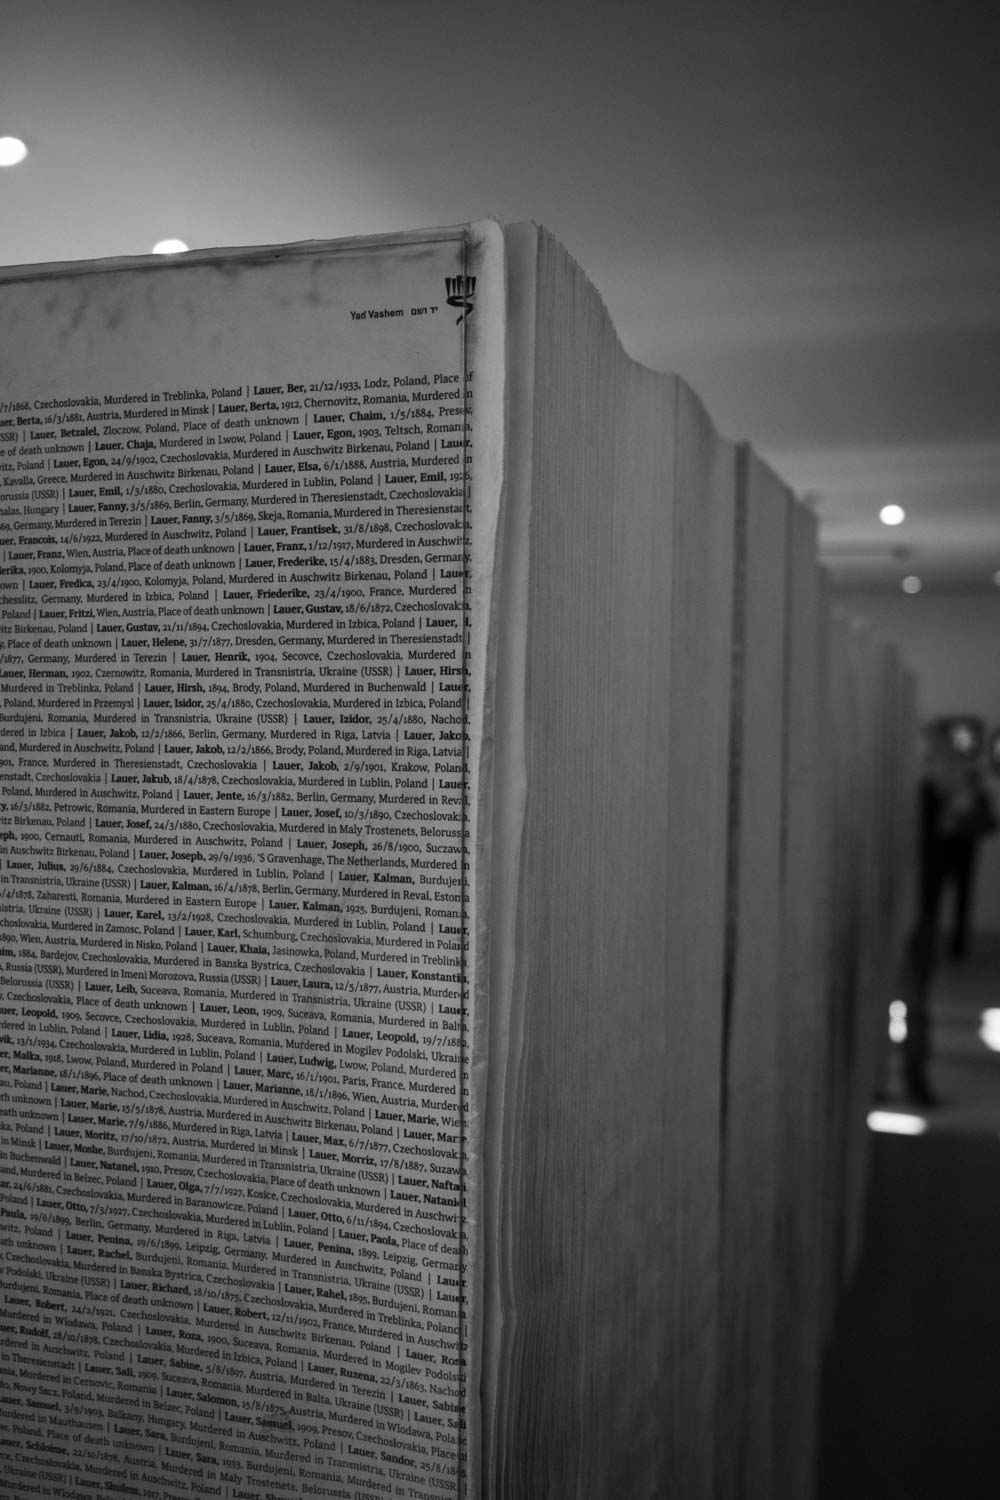 Yad Vashem יד ושם
/7/1868, Czechoslovakia, Murdered in Treblinka, Poland | Lauer, Ber, 21/12/1933, Lodz, Poland, Place of
uer, Berta, 16/3/1881, Austria, Murdered in Minsk | Lauer, Berta, 1912, Chernovitz, Romania, Murdered in
SSR) | Lauer, Betzalel, Zloczow, Poland, Place of death unknown | Lauer, Chaim, 1/5/1884, Presov,
e of death unknown | Lauer, Chaja, Murdered in Lwow, Poland | Lauer, Egon, 1903, Teltsch, Romania,
itz, Poland | Lauer, Egon, 24/9/1902, Czechoslovakia, Murdered in Auschwitz Birkenau, Poland | Lauer,
, Kavalla, Greece, Murdered in Auschwitz Birkenau, Poland | Lauer, Elsa, 6/1/1888, Austria, Murdered in
orussia (USSR) | Lauer, Emil, 1/3/1880, Czechoslovakia, Murdered in Lublin, Poland | Lauer, Emil, 1926,
halas, Hungary | Lauer, Fanny, 3/5/1869, Berlin, Germany, Murdered in Theresienstadt, Czechoslovakia |
69, Germany, Murdered in Terezin | Lauer, Fanny, 3/5/1869, Skeja, Romania, Murdered in Theresienstadt,
uer, Francois, 14/6/1922, Murdered in Auschwitz, Poland | Lauer, Frantisek, 31/8/1898, Czechoslovakia,
| Lauer, Franz, Wien, Austria, Place of death unknown | Lauer, Franz, 1/12/1917, Murdered in Auschwitz,
lerika, 1900, Kolomyja, Poland, Place of death unknown | Lauer, Frederike, 15/4/1883, Dresden, Germany,
own | Lauer, Fredica, 23/4/1900, Kolomyja, Poland, Murdered in Auschwitz Birkenau, Poland | Lauer,
chesslitz, Germany, Murdered in Izbica, Poland | Lauer, Friederike, 23/4/1900, France, Murdered in
Poland | Lauer, Fritzi, Wien, Austria, Place of death unknown | Lauer, Gustav, 18/6/1872, Czechoslovakia,
itz Birkenau, Poland | Lauer, Gustav, 21/11/1894, Czechoslovakia, Murdered in Izbica, Poland | Lauer, H,
y, Place of death unknown | Lauer, Helene, 31/7/1877, Dresden, Germany, Murdered in Theresienstadt |
/1877, Germany, Murdered in Terezin | Lauer, Henrik, 1904, Secovce, Czechoslovakia, Murdered in
Lauer, Herman, 1902, Czernowitz, Romania, Murdered in Transnistria, Ukraine (USSR) | Lauer, Hirsh,
Murdered in Treblinka, Poland | Lauer, Hirsh, 1894, Brody, Poland, Murdered in Buchenwald | Lauer,
, Poland, Murdered in Przemysl | Lauer, Isidor, 25/4/1880, Czechoslovakia, Murdered in Izbica, Poland |
Burdujeni, Romania, Murdered in Transnistria, Ukraine (USSR) | Lauer, Izidor, 25/4/1880, Nachod,
dered in Izbica | Lauer, Jakob, 12/2/1866, Berlin, Germany, Murdered in Riga, Latvia | Lauer, Jakob,
and, Murdered in Auschwitz, Poland | Lauer, Jakob, 12/2/1866, Brody, Poland, Murdered in Riga, Latvia |
901, France, Murdered in Theresienstadt, Czechoslovakia | Lauer, Jakob, 2/9/1901, Krakow, Poland,
enstadt, Czechoslovakia | Lauer, Jakub, 18/4/1878, Czechoslovakia, Murdered in Lublin, Poland | Lauer,
Poland, Murdered in Auschwitz, Poland | Lauer, Jente, 16/3/1882, Berlin, Germany, Murdered in Reval,
y, 16/3/1882, Petrowic, Romania, Murdered in Eastern Europe | Lauer, Josef, 10/3/1890, Czechoslovakia,
itz Birkenau, Poland | Lauer, Josef, 24/3/1880, Czechoslovakia, Murdered in Maly Trostenets, Belorussia
eph, 1900, Cernauti, Romania, Murdered in Auschwitz, Poland | Lauer, Joseph, 26/8/1900, Suczawa,
in Auschwitz Birkenau, Poland | Lauer, Joseph, 29/9/1936, 'S Gravenhage, The Netherlands, Murdered in
| Lauer, Julius, 29/6/1884, Czechoslovakia, Murdered in Lublin, Poland | Lauer, Kalman, Burdujeni,
in Transnistria, Ukraine (USSR) | Lauer, Kalman, 16/4/1878, Berlin, Germany, Murdered in Reval, Estonia
/4/1878, Zaharesti, Romania, Murdered in Eastern Europe | Lauer, Kalman, 1925, Burdujeni, Romania,
istria, Ukraine (USSR) | Lauer, Karel, 13/2/1928, Czechoslovakia, Murdered in Lublin, Poland | Lauer,
choslovakia, Murdered in Zamosc, Poland | Lauer, Karl, Schumburg, Czechoslovakia, Murdered in Poland
890, Wien, Austria, Murdered in Nisko, Poland | Lauer, Khaia, Jasinowka, Poland, Murdered in Treblinka,
im, 1884, Bardejov, Czechoslovakia, Murdered in Banska Bystrica, Czechoslovakia | Lauer, Konstantin,
, Russia (USSR), Murdered in Imeni Morozova, Russia (USSR) | Lauer, Laura, 12/5/1877, Austria, Murdered
Belorussia (USSR) | Lauer, Leib, Suceava, Romania, Murdered in Transnistria, Ukraine (USSR) | Lauer,
, Czechoslovakia, Place of death unknown | Lauer, Leon, 1909, Suceava, Romania, Murdered in Balta,
uer, Leopold, 1909, Secovce, Czechoslovakia, Murdered in Lublin, Poland | Lauer, Leopold, 19/7/1882,
dered in Lublin, Poland | Lauer, Lidia, 1928, Suceava, Romania, Murdered in Mogilev Podolski, Ukraine
vik, 13/1/1934, Czechoslovakia, Murdered in Lublin, Poland | Lauer, Ludwig, Lwow, Poland, Murdered in
er, Malka, 1918, Lwow, Poland, Murdered in Poland | Lauer, Marc, 16/1/1901, Paris, France, Murdered in
er, Marianne, 18/1/1896, Place of death unknown | Lauer, Marianne, 18/1/1896, Wien, Austria, Murdered
au, Poland | Lauer, Marie, Nachod, Czechoslovakia, Murdered in Auschwitz, Poland | Lauer, Marie, Wien,
th unknown | Lauer, Marie, 15/5/1878, Austria, Murdered in Auschwitz Birkenau, Poland | Lauer, Marie,
eath unknown | Lauer, Marie, 7/9/1886, Murdered in Riga, Latvia | Lauer, Max, 6/7/1877, Czechoslovakia,
ka, Poland | Lauer, Moritz, 17/10/1872, Austria, Murdered in Minsk | Lauer, Morriz, 17/8/1887, Suzawa,
in Minsk | Lauer, Moshe, Burdujeni, Romania, Murdered in Transnistria, Ukraine (USSR) | Lauer, Naftali,
in Buchenwald | Lauer, Natanel, 1910, Presov, Czechoslovakia, Place of death unknown | Lauer, Nataniel
and, Murdered in Belzec, Poland | Lauer, Olga, 7/7/1927, Kosice, Czechoslovakia, Murdered in Auschwitz
ar, 24/6/1881, Czechoslovakia, Murdered in Baranowicze, Poland | Lauer, Otto, 6/11/1894, Czechoslovakia,
Poland | Lauer, Otto, 7/3/1927, Czechoslovakia, Murdered in Lublin, Poland | Lauer, Paola, Place of death
Paula, 19/6/1899, Berlin, Germany, Murdered in Riga, Latvia | Lauer, Penina, 1899, Leipzig, Germany,
witz, Poland | Lauer, Penina, 19/6/1899, Leipzig, Germany, Murdered in Auschwitz, Poland | Lauer,
ath unknown | Lauer, Rachel, Burdujeni, Romania, Murdered in Transnistria, Ukraine (USSR) | Lauer,
, Czechoslovakia, Murdered in Banska Bystrica, Czechoslovakia | Lauer, Rahel, 1895, Burdujeni, Romania,
v Podolski, Ukraine (USSR) | Lauer, Richard, 18/10/1875, Czechoslovakia, Murdered in Treblinka, Poland |
Burdujeni, Romania, Place of death unknown | Lauer, Robert, 12/11/1902, France, Murdered in Auschwitz
Lauer, Robert, 24/2/1921, Czechoslovakia, Murdered in Auschwitz Birkenau, Poland | Lauer, Rosa
Murdered in Wlodawa, Poland | Lauer, Roza, 1900, Suceava, Romania, Murdered in Mogilev Podolski
uer, Rudolf, 28/10/1878, Czechoslovakia, Murdered in Izbica, Poland | Lauer, Ruzena, 22/3/1863, Nachod
rdered in Auschwitz, Poland | Lauer, Sabine, 5/8/1897, Austria, Murdered in Terezin | Lauer, Sabine
in Theresienstadt | Lauer, Sali, 1909, Suceava, Romania, Murdered in Balta, Ukraine (USSR) | Lauer, Sali
ania, Murdered in Cernovic, Romania | Lauer, Salomon, 15/8/1875, Austria, Murdered in Wlodawa, Poland
80, Nowy Sacz, Poland, Murdered in Belzec, Poland | Lauer, Samuel, 1909, Presov, Czechoslovakia, Place of
auer, Samuel, 3/9/1903, Balkany, Hungary, Murdered in Auschwitz, Poland | Lauer, Sandor, 25/8/18
urdered in Mauthausen | Lauer, Sara, Burdujeni, Romania, Murdered in Transnistria, Ukraine (USSR)
w, Poland, Place of death unknown | Lauer, Sara, 1933, Burdujeni, Romania, Murdered in Transnist
auer, Schloime, 22/10/1878, Austria, Murdered in Maly Trostenets, Belorussia (USSR)
ce, Czechoslovakia, Murdered in Auschwitz, Poland
Ukraine (USSR) | Lauer, Shulem, 1917,
Murdered in Wlodawa